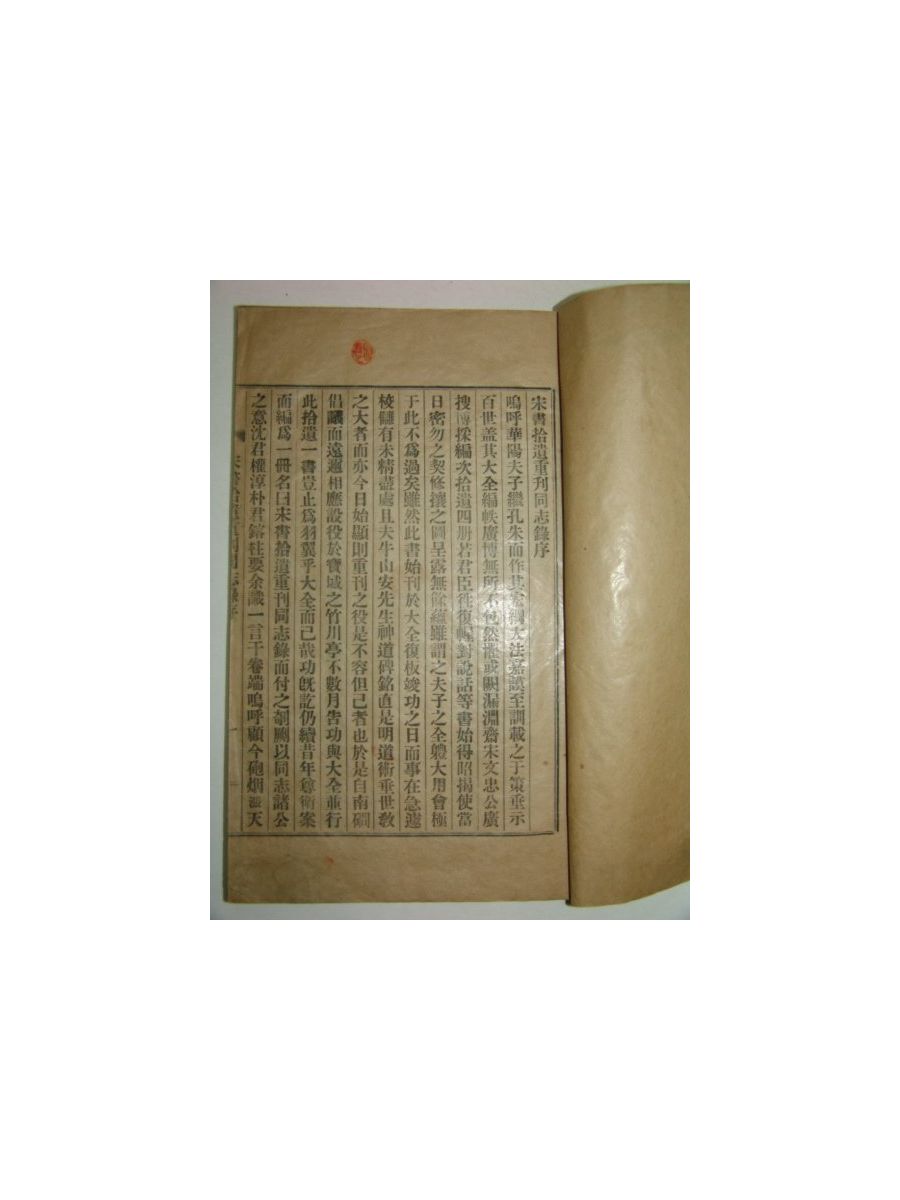 宋書拾遺重刊同志錄序
嗚呼華陽夫子繼孔朱而作其宏綱大法嘉謨至訓載之于策垂示
百世盖其大全編帙廣博無所不包然惟或闕漏淵齋宋文忠公廣
搜博採編次拾遺四册若君臣徃復幄對說話等書始得昭揭使當
日密勿之契修攘之圖呈露無餘蘊雖謂之夫子之全軆大用會極
于此不爲過矣雖然此書始刊於大全復板竣功之日而事在急遽
校讎有未精盡處且夫牛山安先生神道碑銘直是明道術垂世敎
之大者而亦今日始顯則重刊之役是不容但已者也於是自南磵
倡議而遠邇相應設役於寶城之竹川亭不數月告功與大全並行
此拾遺一書豈止爲羽翼乎大全而已哉功旣訖仍續昔年尊衛案
而編爲一冊名曰宋書拾遺重刊同志錄而付之剞劂以同志諸公
之意沈君權淳朴君鎔柱要余識一言于卷端嗚呼顧今砲烟漲天
宋書拾遺重刊同志錄序
一